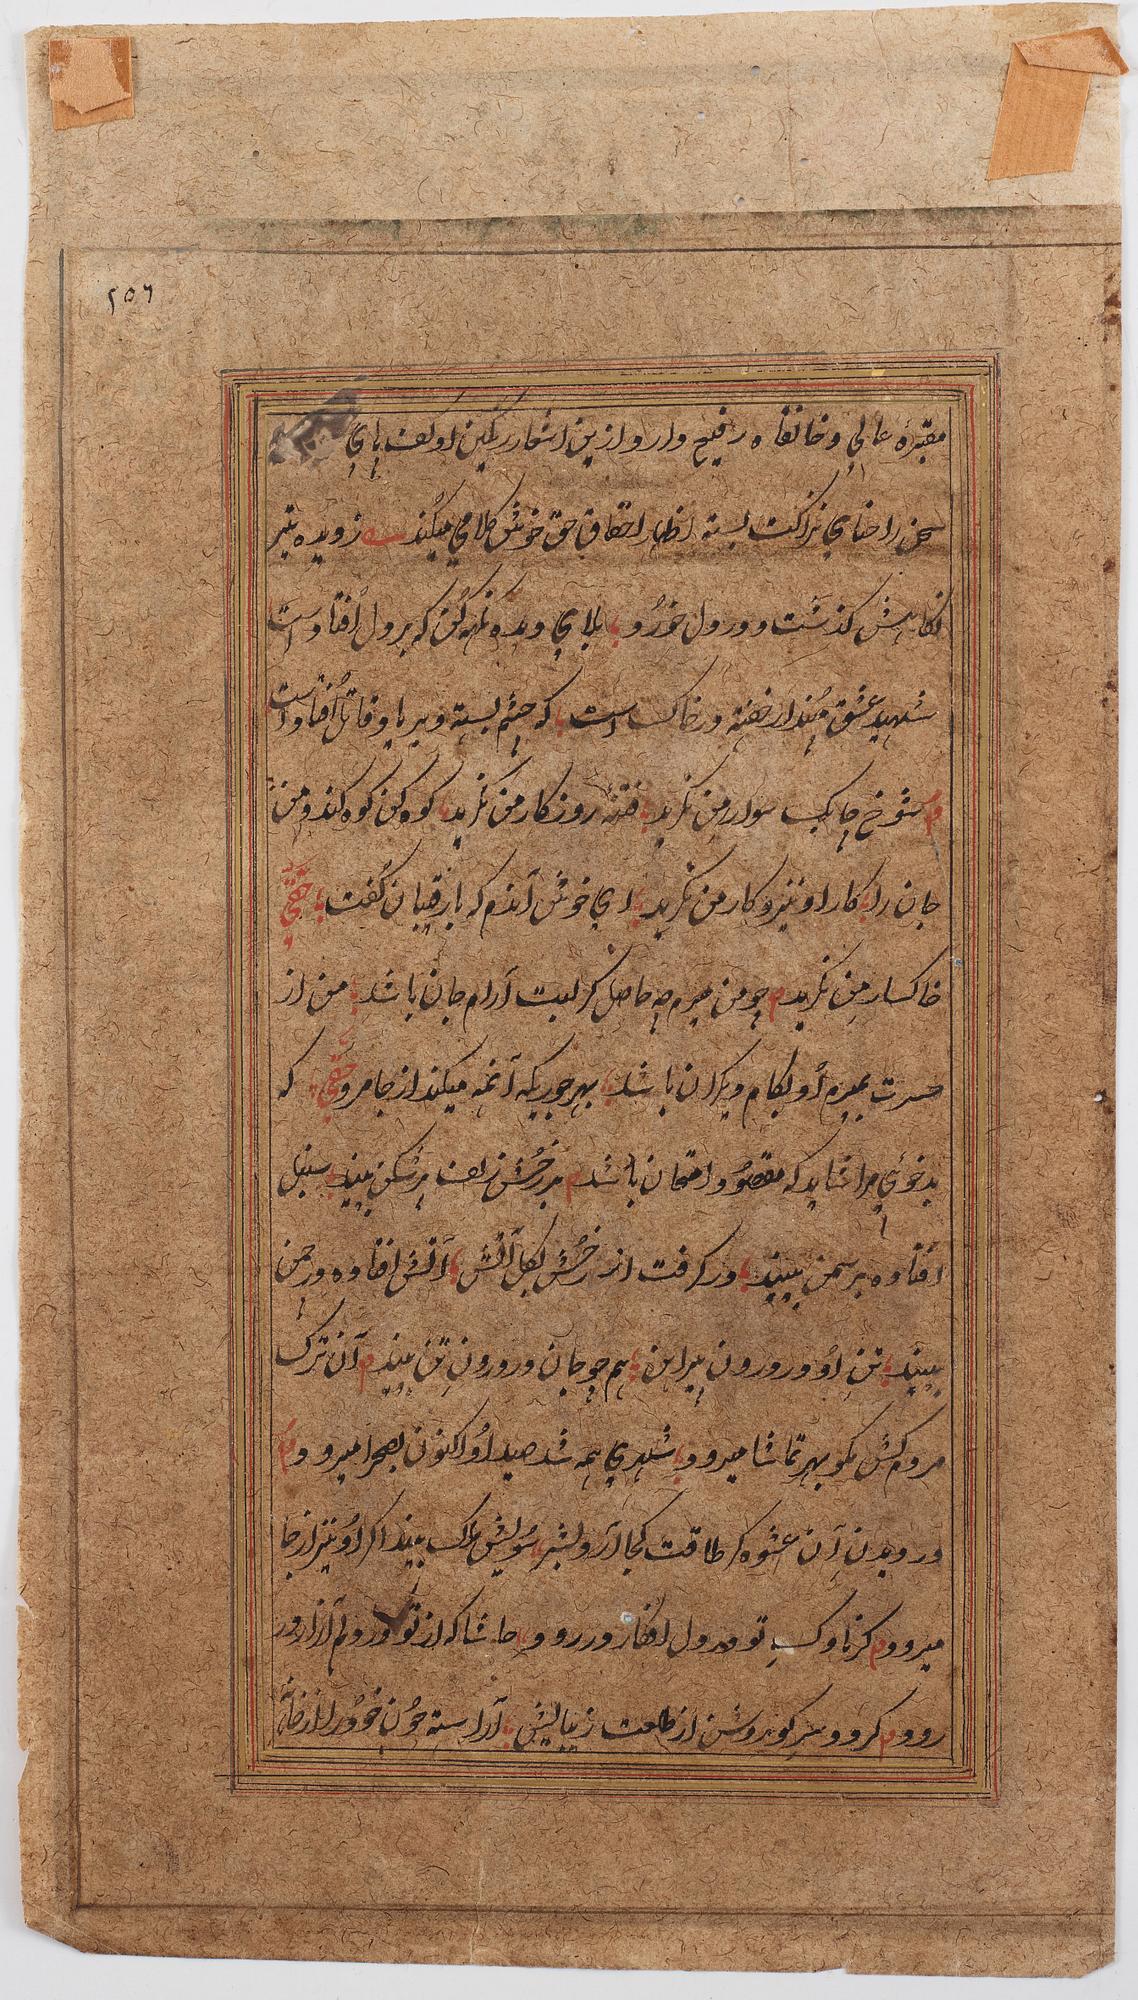 ۲۵۶
مقبرهٔ عالی و خانقاه رفیع دارد و ازین اشعار رنگین او کف پای
سخن را حنای نزاکت بسته اظهار احقاق حق خوش کلامی میکند ز دیده تیر
نکاهش کذشت و در دل خورد بلای دیده نکه کن که بر دل افتاد است
شهید عشق مپندار خفته در خاک است که چشم بسته و بر پای قاتل افتاد است
م شوخ چابک سوار من نکرید فتنهٔ روزکار من نکرید کوه کن کوه کند و من
جان را کار او نیز و کار من نکرید ای خوش آندم که با رقیبان کفت حقی
خاکسار من نکرید م چو من میرم چه حاصل کر لبت آرام جان باشد من از
حسرت بمیرم او بکام دیکران باشد بهر جوریکه آنمه میکند از جا مرو حقی که
بدخوئی مرا شاید که مقصود امتحان باشد م بر رخش زلف پرشکن بینید سنبل
افتاده بر سمن بینید در کرفت از رخش بکل آتش آتش افتاده در چمن
بینید تن او در درون پیراهن هم چو جان در درون تن بینید م آن ترک
مردم کش نکو بهر تماشا میرود شهری همه شد صید او اکنون بصحرا میرود م
در دیدن آن عشوه کر طاقت کجا آرد بشر سویش ملک بیند اکر او نیز از جا
میرود م کر ناوک تو در دل افکار در رود حاشا که از تو در دلم آزار در
رود م کردد سر کو روشن از طلعت زیبایش آراسته چون خود را از خانه